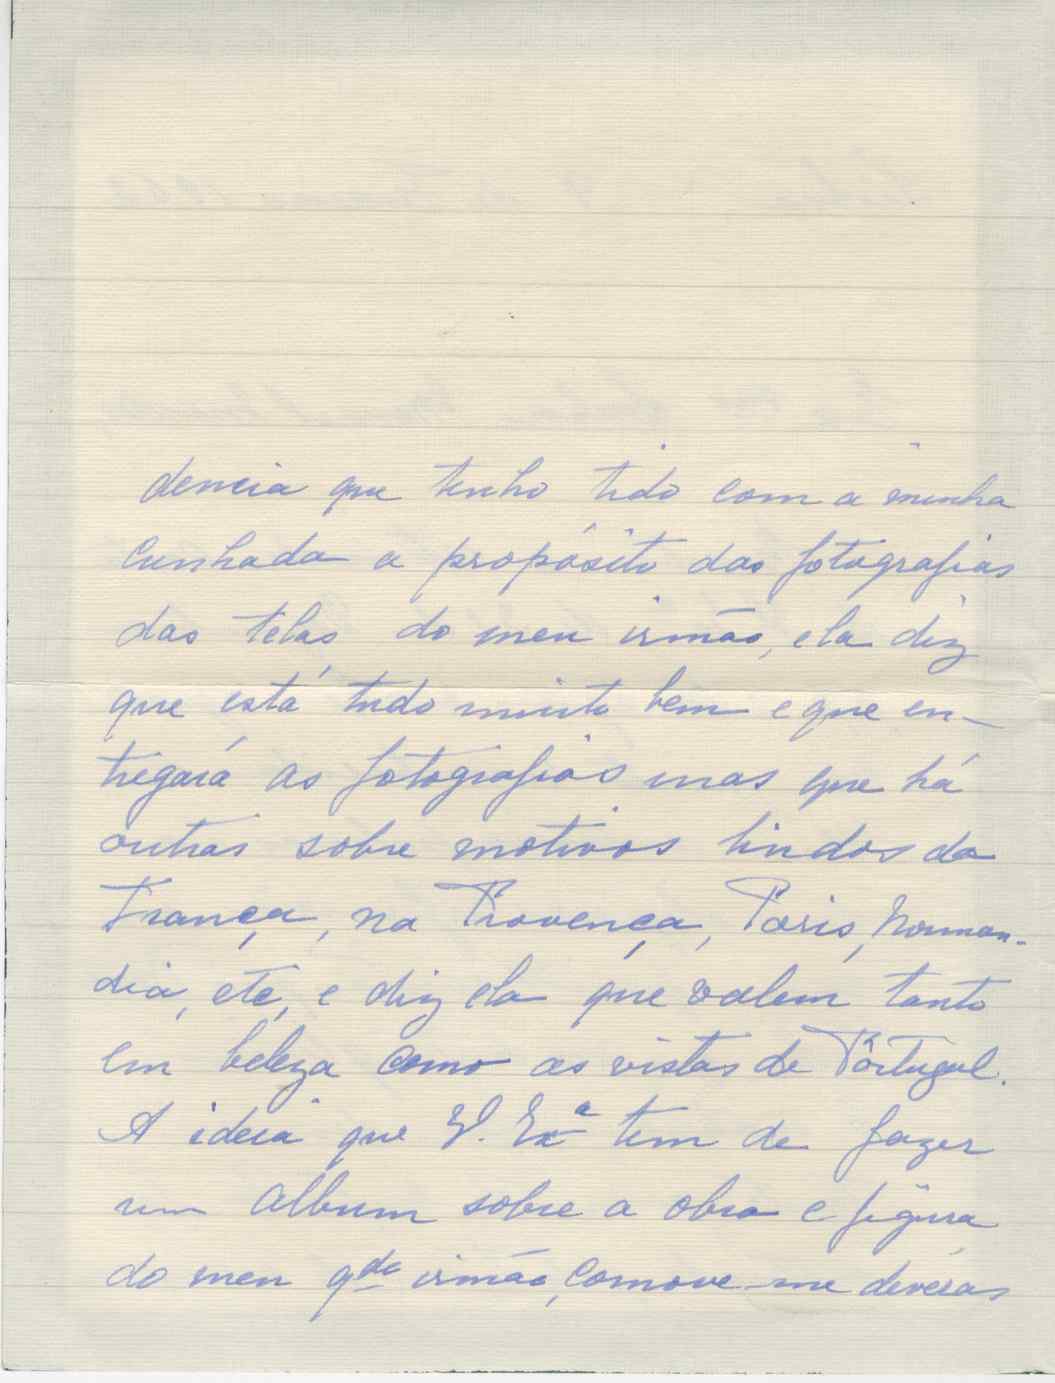 dencia que tenho tido com a minha
cunhada a propósito das fotografias
das telas do meu irmão, ela diz
que está tudo muito bem e que en-
tregará as fotografias mas que há
outras sobre motivos lindos da
França, na Provença, Paris, Norman-
dia, etc, e diz ela que valem tanto
em beleza como as vistas de Portugal.
A ideia que V. Exª tem de fazer
um album sobre a obra e figura
do meu qdo irmão, comove-me deveras